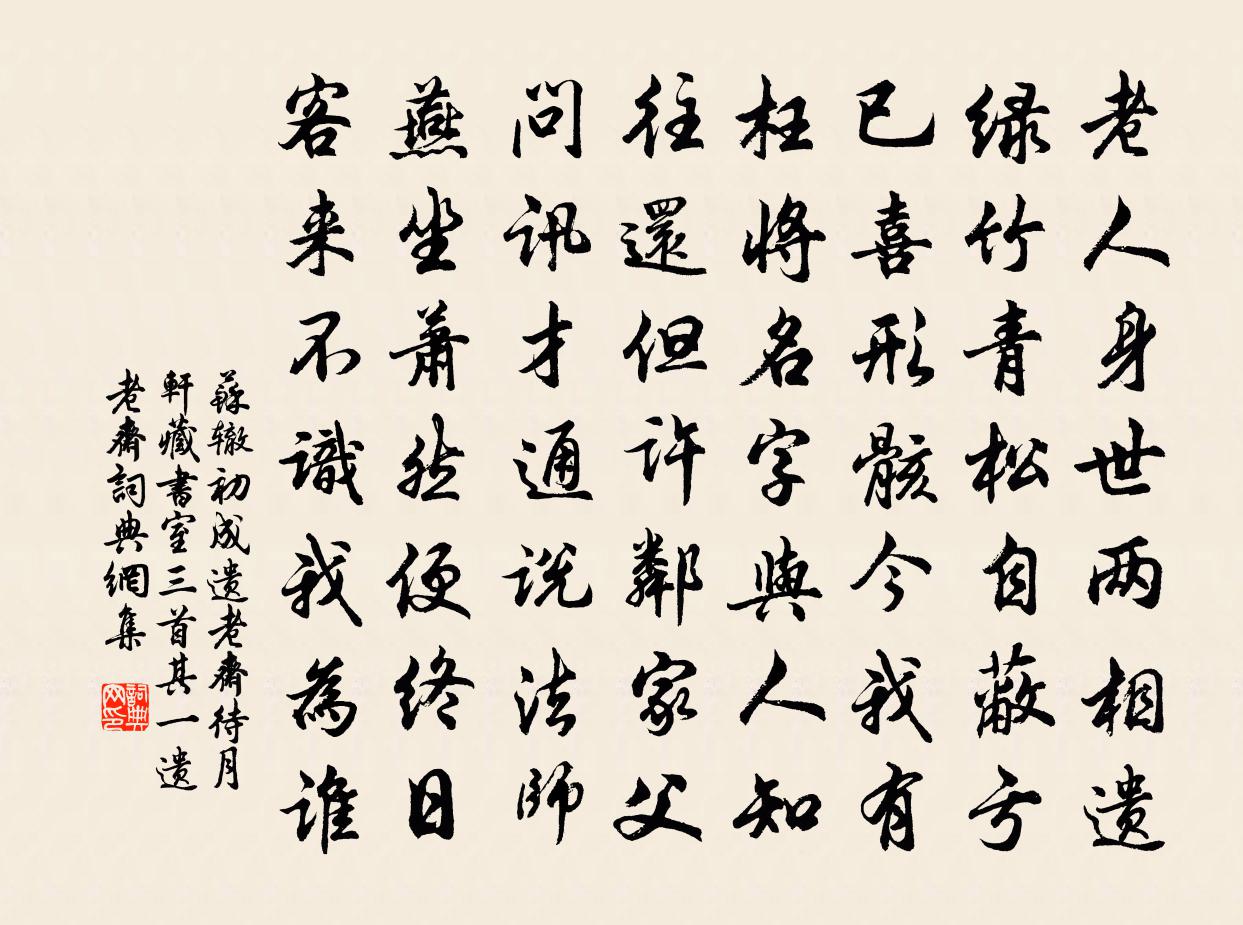 老人身世两相遗
绿竹青松自蔽亏
已喜形骸今我有
枉将名字與人知
往還但许鄰家父
问讯才通说法師
燕坐萧然便终日
客来不識我為谁
蘇辙初成遗老齋待月
軒藏書室三首其一遗
老齋詞典網集
詞典
网印